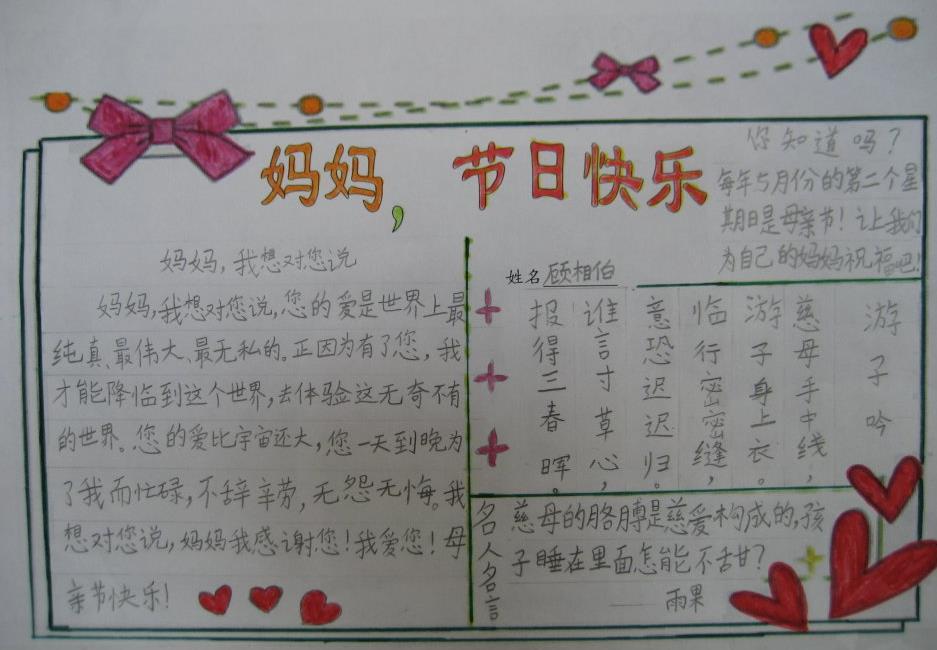 妈妈，节日快乐
你知道吗？
每年5月份的第二个星
期日是母亲节！让我们
为自己的妈妈祝福吧！
妈妈，我想对您说
妈妈，我想对您说，您的爱是世界上最
纯真、最伟大、最无私的。正因为有了您，我
才能降临到这个世界，去体验这无奇不有
的世界。您的爱比宇宙还大，您一天到晚为
了我而忙碌，不辞辛劳，无怨无悔。我
想对您说，妈妈我感谢您！我爱您！母
亲节快乐！
姓名 顾相伯
游子吟
慈母手中线，
游子身上衣。
临行密密缝，
意恐迟迟归。
谁言寸草心，
报得三春晖。
名人名言
慈母的胳膊是慈爱构成的，孩
子睡在里面怎能不舌甘？
——雨果